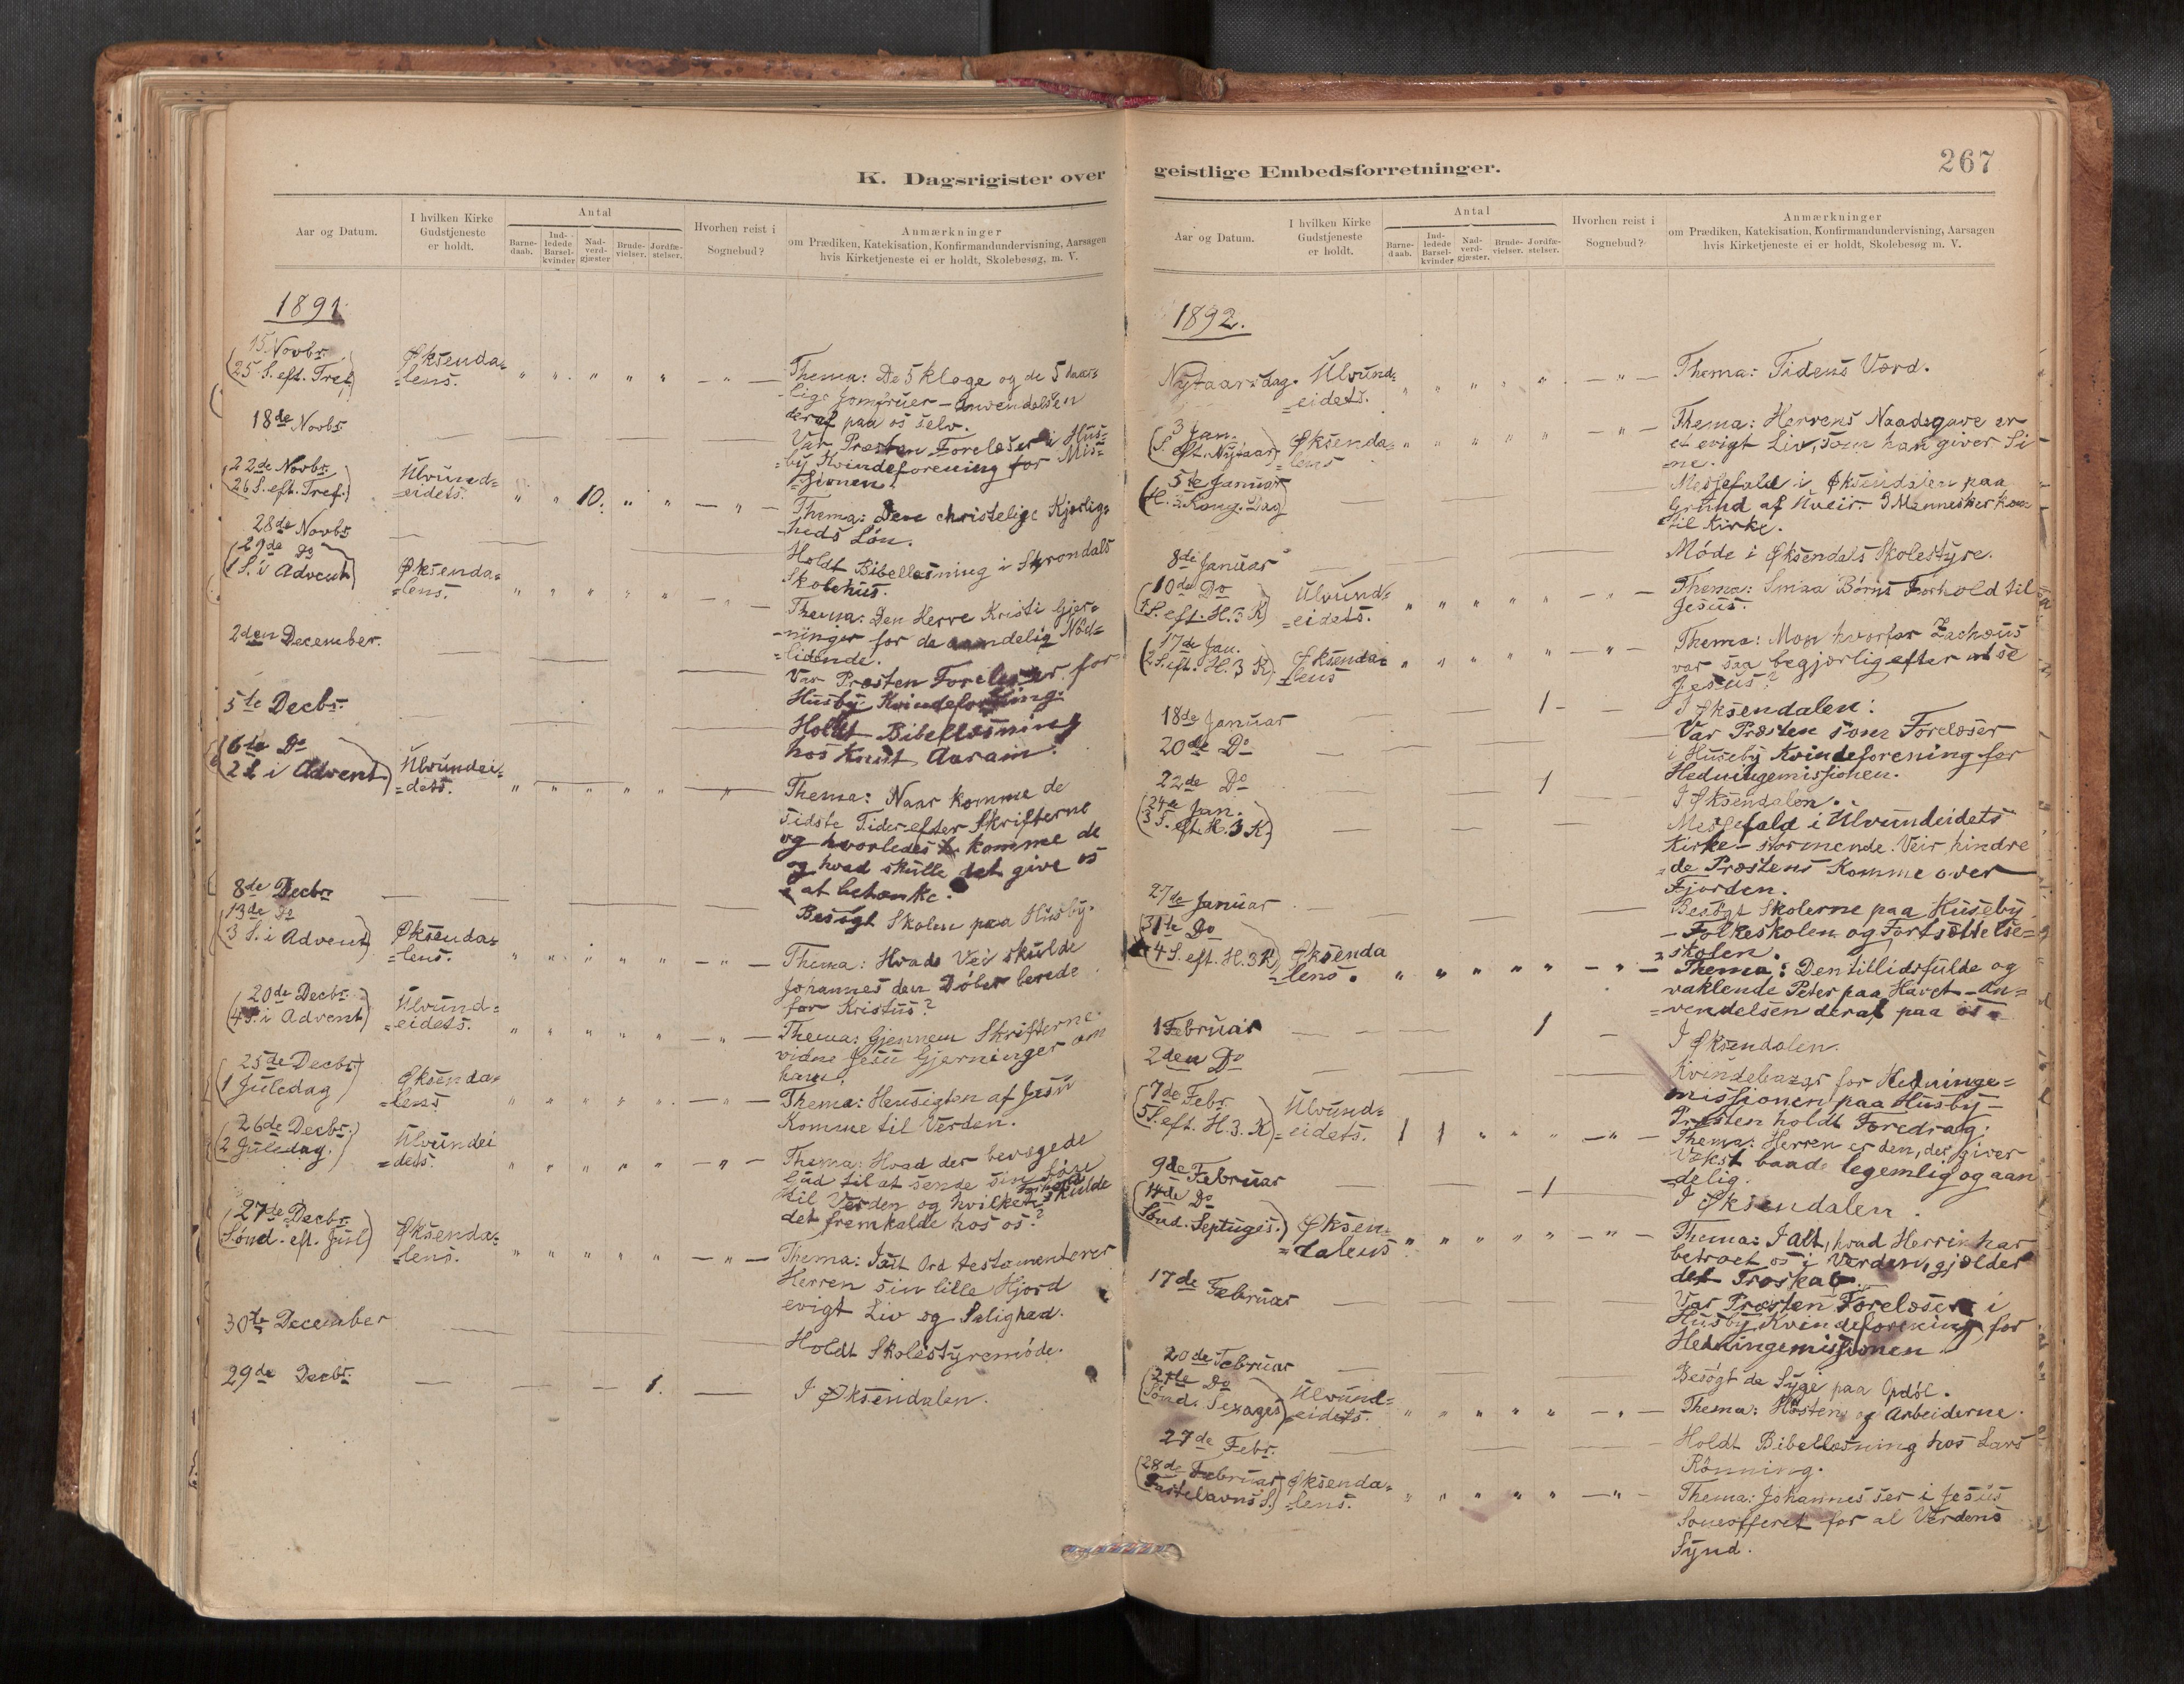 K. Dagsrigister over
Aar og Datum.
I hvilken Kirke
Gudstjeneste
er holdt.
Antal
Barne-
daab.
Ind-
ledede
Barsel-
kvinder
Nad-
verd-
gjæster.
Brude-
vielser.
Jordfæ-
stelser.
Hvorhen reist i
Sognebud?
Anmærkninger
om Prædiken, Katekisation, Konfirmandundervisning, Aarsagen
hvis Kirketjeneste ei er holdt, Skolebesøg, m. V.
1891
15 Novbr.
(25 S. eft. Tref.) Øksenda=
=lens. " " " " " — " — Thema: De 5 kloge og de 5 daar=
=lige Jomfruer – Anvendelsen
deraf paa os selv.
18de Novbr. — — — Var Præsten Forelæser i Hus=
=by Kvindeforening for Mis=
=sionen.
22de Novbr.
(26 S. eft. Tref.) Ulvund=
=eidets. " " 10. " " — " — Thema: Den christelige Kjærlig=
heds Løn.
28de Novbr — — — Holdt Bibellæsning i Skrondals
Skolehus.
29de Do
(1 S. i Advent) Øksenda=
=lens. " " " " " — " — Thema: Den Herre Kristi Gjer=
=ninger for de aandelig Nød=
=lidende.
2den December. — — — Var Præsten Forelæser for
Husby Kvindeforening.
5te Decbr. — — — Holdt Bibellæsning
hos Knut Aaram.
(6te Do
2 S. i Advent) Ulvundei=
=dets. " " " " " — " — Thema: Naar komme de
sidste Tider efter Skrifterne
og hvorledes komme de
og hvad skulle det give os
at betænke.
8de Decbr — — — Besøgt Skolen paa Husby.
13de Do
(3 S. i Advent) Øksenda=
=lens. " " " " " — " — Thema: Hvad Vei skulde
Johannes den Døber berede
for Kristus?
20de Decbr.
(4 S. i Advent) Ulvund=
=eidets. " " " " " — " — Thema: Gjennem Skrifterne
vidne Jesu Gjerninger om
ham.
25de Decbr.
(1 Juledag) Øksenda=
=lens " " " " " — " — Thema: Hensigten af Jesu
Komme til Verden.
26de Decbr.
(2 Juledag.) Ulvundei
=dets. " " " " " — " — Thema: Hvad der bevægede
Gud til at sende sin Søn
til Verden og hvilket skulde
det fremkalde hos os?
27de Decbr.
(Sønd. eft. Jul) Øksenda=
=lens. " " " " " — " — Thema: I sit Ord testamenterer
Herren sin lille Hjord
evigt Liv og Salighed.
30te December — — — Holdt Skolestyremøde.
29de Decbr. — — — 1. — I Øksendalen.
geistlige Embedsforretninger. 267
Aar og Datum.
I hvilken Kirke
Gudstjeneste
er holdt.
Antal
Barne-
daab.
Ind-
ledede
Barsel-
kvinder
Nad-
verd-
gjæster.
Brude-
vielser.
Jordfæ-
stelser.
Hvorhen reist i
Sognebud?
Anmærkninger
om Prædiken, Katekisation, Konfirmandundervisning, Aarsagen
hvis Kirketjeneste ei er holdt, Skolebesøg m. V.
1892.
Nytaarsdag. Ulvund=
=eidets. " " " " " — " — Thema: Tidens Værd.
3 Jan.
(S. eft. Nytaar) Øksenda=
=lens " " " " " — " — Thema: Herrens Naadegave er
et evigt Liv, som han giver Si
ne.
5te Januar
(H. 3 Kong. Dag) — — — Messefald i Øksendalen paa
Grund af Uveir. 3 Mennesker kom
til Kirke.
8de Januar — — — Møde i Øksendals Skolestyre.
10de Do
(1 S. eft. H. 3 K) Ulvund=
=eidets. " " " " " — " — Thema: Smaa Børns Forhold til
Jesus.
17de Jan.
(2 S. eft. H. 3 K) Øksenda=
=lens " " " " " — " — Thema: Mon hvorfor Zachæus
var saa begjærlig efter at se
Jesus?
18de Januar — — 1 — I Øksendalen.
20de Do — — — Var Præsten som Forelæser
i Huseby Kvindeforening for
Hedningemissionen.
22de Do — — 1 — I Øksendalen.
(24de Jan.
3 S. eft. H. 3 K.) — — — Messefald i Ulvundeidets
Kirke – stormende Veir hindre
=de Præstens Komme over
Fjorden.
27de Januar — — — Besøgt Skolerne paa Huseby
– Folkeskolen og Fortsættelse=
=skolen.
(31te Do
4 S. eft. H. 3 K) Øksenda
lens. " " " " " — " — Thema: Den tillidsfulde og
vaklende Peter paa Havet – An=
=vendelsen deraf paa os.
1 Februar — — — 1 — I Øksendalen.
2den Do — Kvindebazar for Hedninge=
missionen paa Husby –
Præsten holdt Foredrag.
(7de Febr.
5 S. eft. H. 3. K) Ulvund=
=eidets. 1 1 " " " — " — Thema: Herren er den, der giver
Vækst baade legemlig og aan
=delig.
9de Februar — — — 1 I Øksendalen.
(14de Do
Sønd. Septuges.) Øksen=
=dalens " " " " " — " — Thema: I Alt, hvad Herren har
betroet os i Verden, gjælder
det Troskab.
17de Februar — — — Var Præsten Forelæser i
Husby Kvindeforening for
Hedningemissionen
20de Februar — — — Besøgt de Syge paa Opdøl.
(21te Do
Sønd. Sexages) Ulvund=
=eidets. " " " " " — " — Thema: Høsten og Arbeiderne.
27de Febr. — — — Holdt Bibellæsning hos Lars
Rønning.
(28de Februar
Fastelavns S.) Øksenda=
=lens. " " " " " — " — Thema: Johannes ser i Jesus
Soneofferet for al Verdens
Synd.